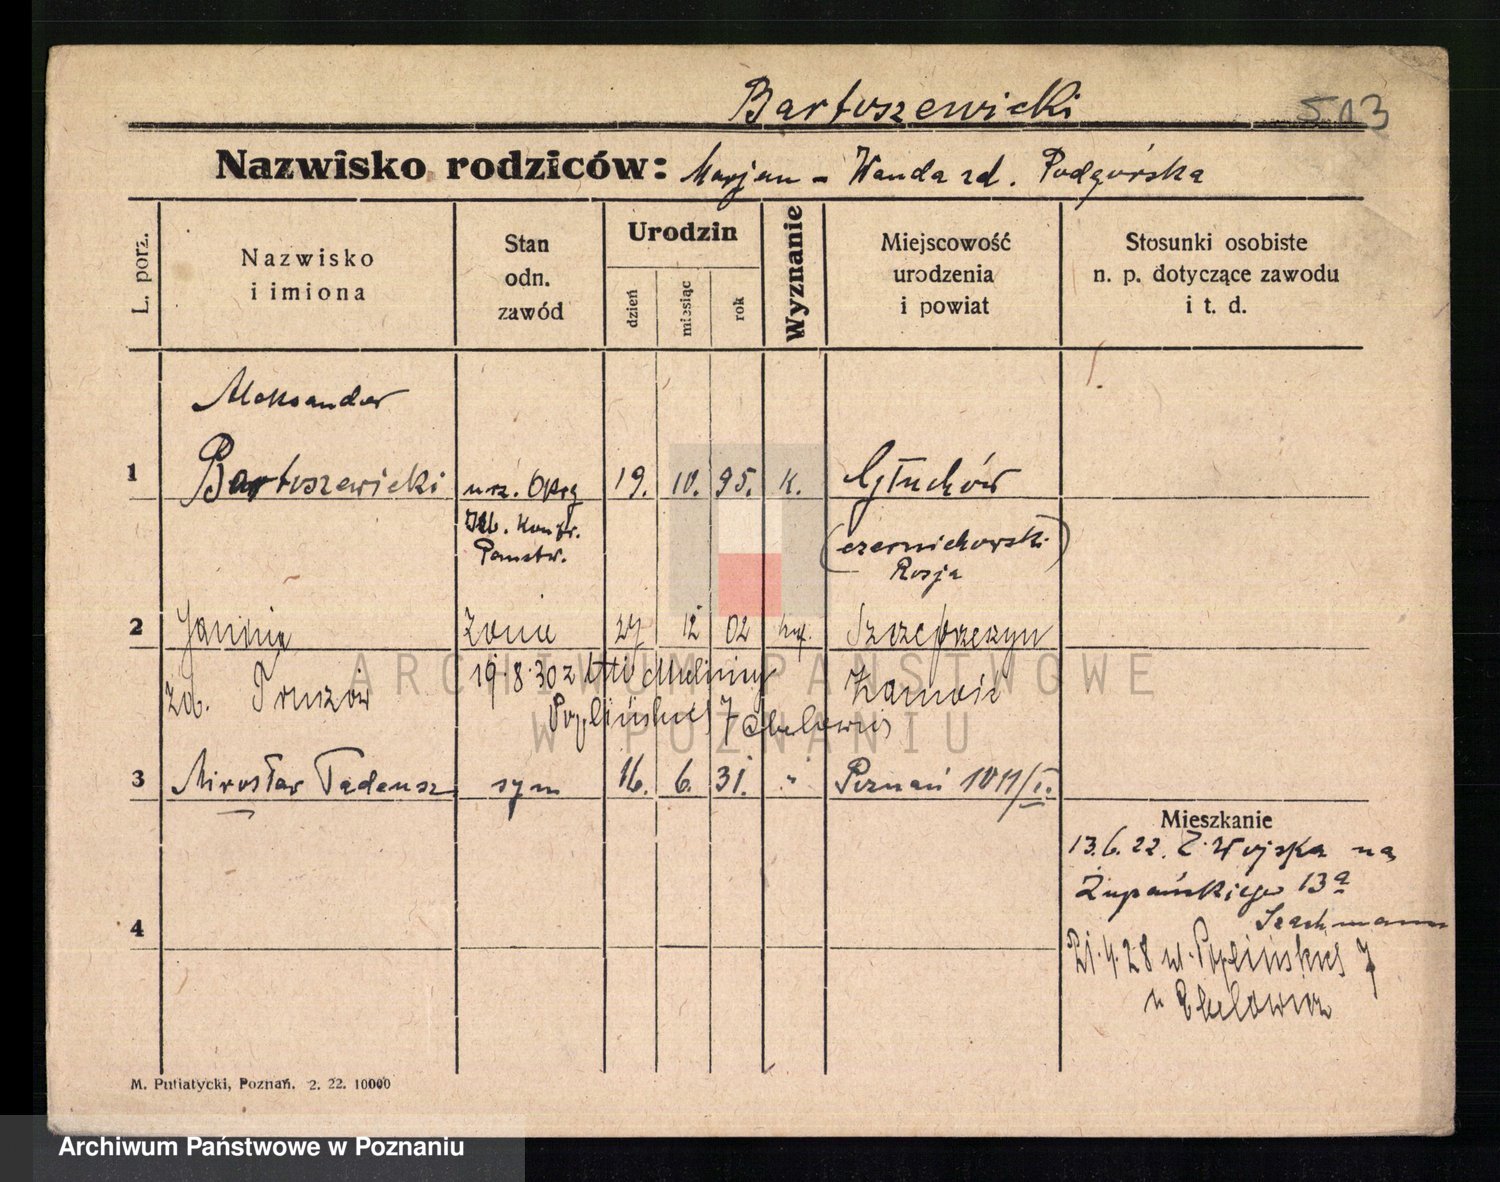 Bartoszewicki 503
Nazwisko rodziców: Marjan - Wanda zd. Podgórska
L. porz.
Nazwisko
i imiona
Stan
odn.
zawód
Urodzin
dzień
miesiąc
rok
Wyznanie
Miejscowość
urodzenia
i powiat
Stosunki osobiste
n. p. dotyczące zawodu
i t. d.
Aleksander
1 Bartoszewicki urz. Okrg 19. 10. 95. k. Głuchów
Izb. Kontr.
Państw.
(czernichowski)
Rosja
2 Janina żona 27 12 02 kat. Szczebrzeszyn
zd. 19.8.30 z Zamość
Poplińskich 7
3 Mirosław Tadeusz syn 16. 6. 31. " Poznań 1011/I.
Mieszkanie
13.6.22. Z Wojska na
Żupańskiego 13a
4
21.4.28 ul. Poplińskich 7
u
M. Putiatycki, Poznań. 2. 22. 10000
ARCHIWUM PAŃSTWOWE
W POZNANIU
Archiwum Państwowe w Poznaniu